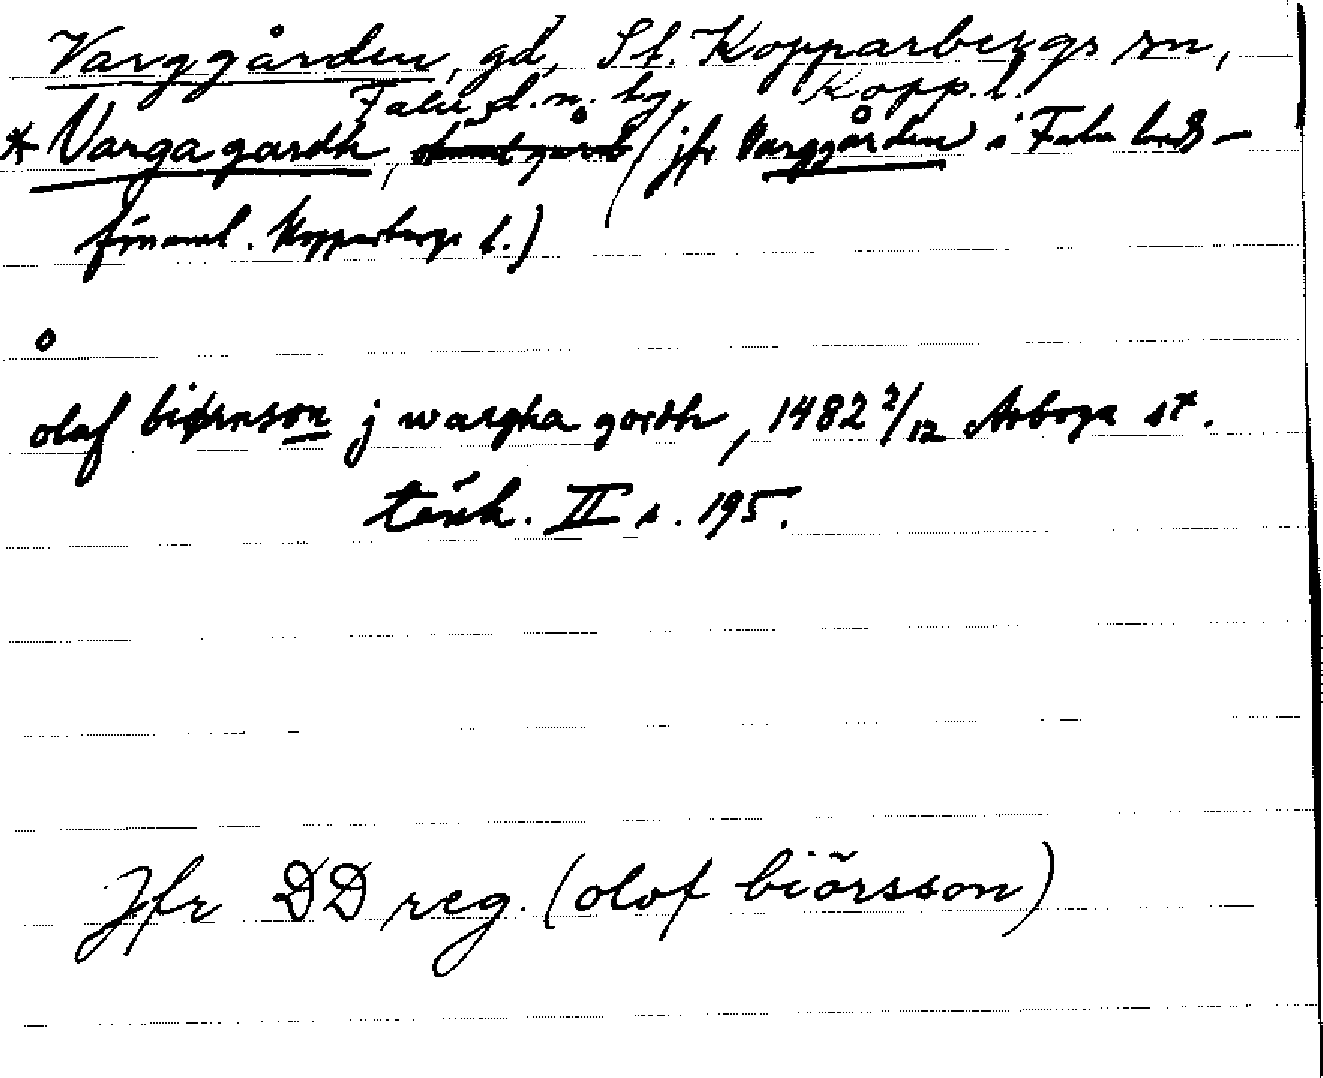 Varggården, gd, St. Kopparbergs sn,
Falu d.n. hg, Kopp. l.
* Varga gardh, (jfr Varggården i Falu lands-
församl. Kopparbergs l.)
o
olaf biørnson j wargha gordh, 1482 2/12 Arboga st.
tänk. II s. 195.
Jfr DD reg. (olof biörsson)